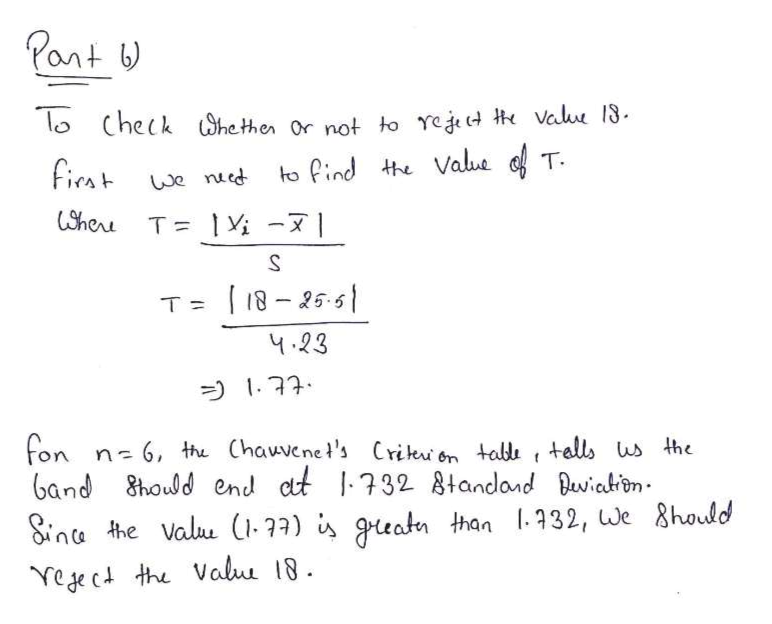 Part b)
To Check Whether or not to reject the value 18.
first we need to find the value of T.
Where T = |Xi - x̄|
S
T = |18 - 25.5|
4.23
=) 1.77.
for n = 6, the Chauvenet's Criterion table, tells us the
band Should end at 1.732 Standard Deviation.
Since the value (1.77) is greater than 1.732, We Should
reject the value 18.